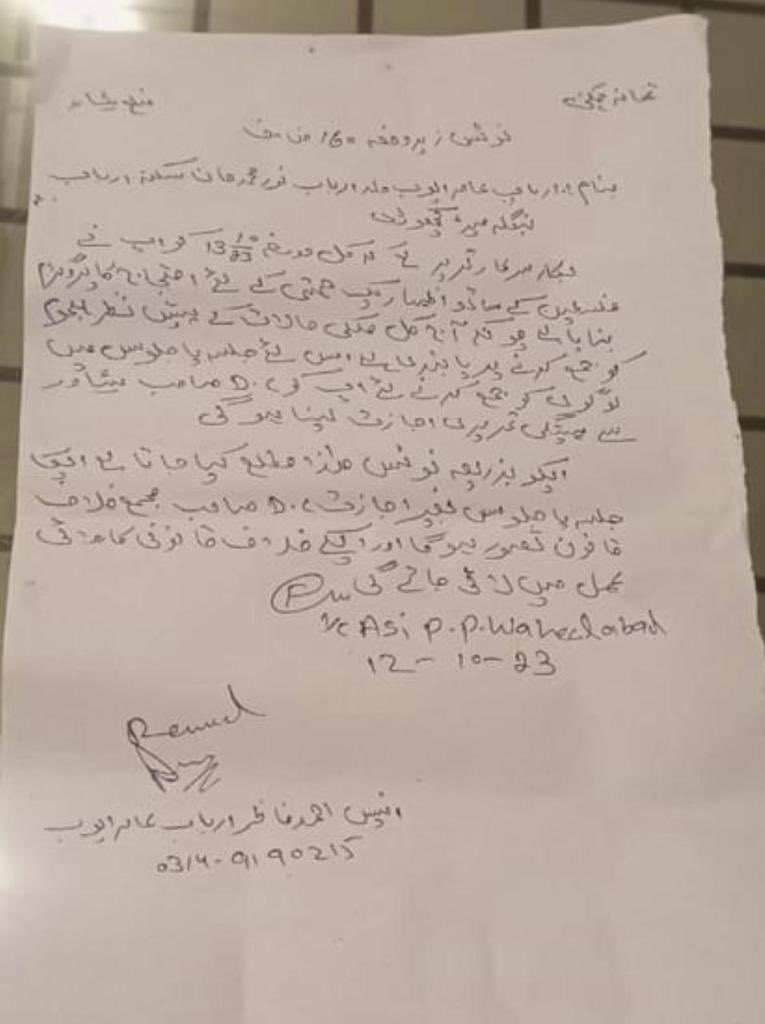 تھانہ چمکنی ضلع پشاور
نوٹس زیر دفعہ 160 ض ف
بنام ارباب عامر ایوب ولد ارباب نور محمد خان سکنہ ارباب
بنگلہ میرہ کچوڑی
بحوالہ تحریر ہے کہ کل مورخہ 13 10/23 کو آپ نے
فلسطین کے ساتھ اظہار یک جہتی کے لئے احتجاج کا پروگرام
بنایا ہے چونکہ آج کل ملکی حالات کے پیش نظر ہجوم
کو جمع کرنے پر پابندی ہے اس لئے جلسہ یا جلوس میں
لوگوں کو جمع کرنے لئے آپ کو D.C صاحب پشاور
سے پیشگی تحریری اجازت لینا ہو گی
آپکو بذریعہ نوٹس ہذا مطلع کیا جاتا ہے آپکا
جلسہ یا جلوس بغیر اجازت D.C صاحب مجمع خلاف
قانون تصور ہوگا اور آپکے خلاف قانونی کاروائی
عمل میں لائی جائے گی
I/C ASi P.P. Waheedabad
12-10-23
انیس احمد ارباب عامر ایوب
0314-9190215